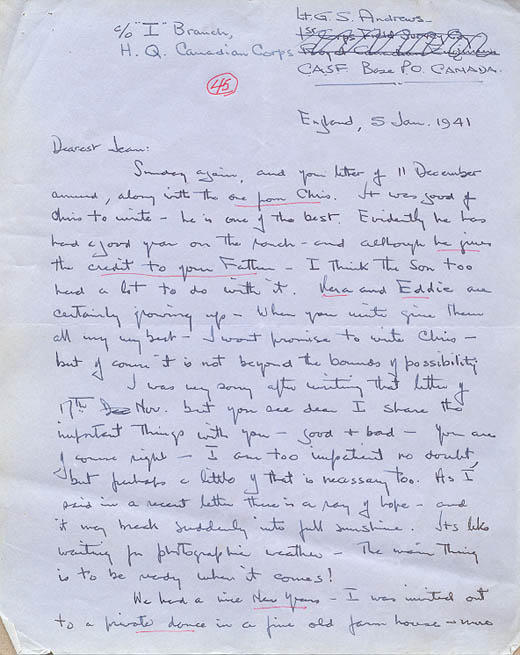 Lt. G. S. Andrews
c/o "I" Branch,
H. Q. Canadian Corps
1st Corps Field Survey Co
Royal Canadian Engineers
C.A.S.F. Base P.O. CANADA.
45
England, 5 Jan. 1941
Dearest Jean:
Sunday again, and your letter of 11 December
arrived, along with the one from Chris. It was good of
Chris to write – he is one of the best. Evidently he has
had a good year on the ranch – and although he gives
the credit to your Father – I think the Son too
had a lot to do with it. Vera and Eddie are
certainly growing up – When you write give them
all my my best – I wont promise to write Chris –
but of course it is not beyond the bounds of possibility
I was very sorry after writing that letter of
17th Nov. but you see dear I share the
important things with you – good + bad – You are
of course right – I am too impatient no doubt,
but perhaps a little of that is necessary too. As I
said in a recent letter there is a ray of hope – and
it may break suddenly into full sunshine. Its like
waiting for photographic weather – The main thing
is to be ready when it comes!
We had a nice New Years – I was invited out
to a private dance in a fine old farm house –